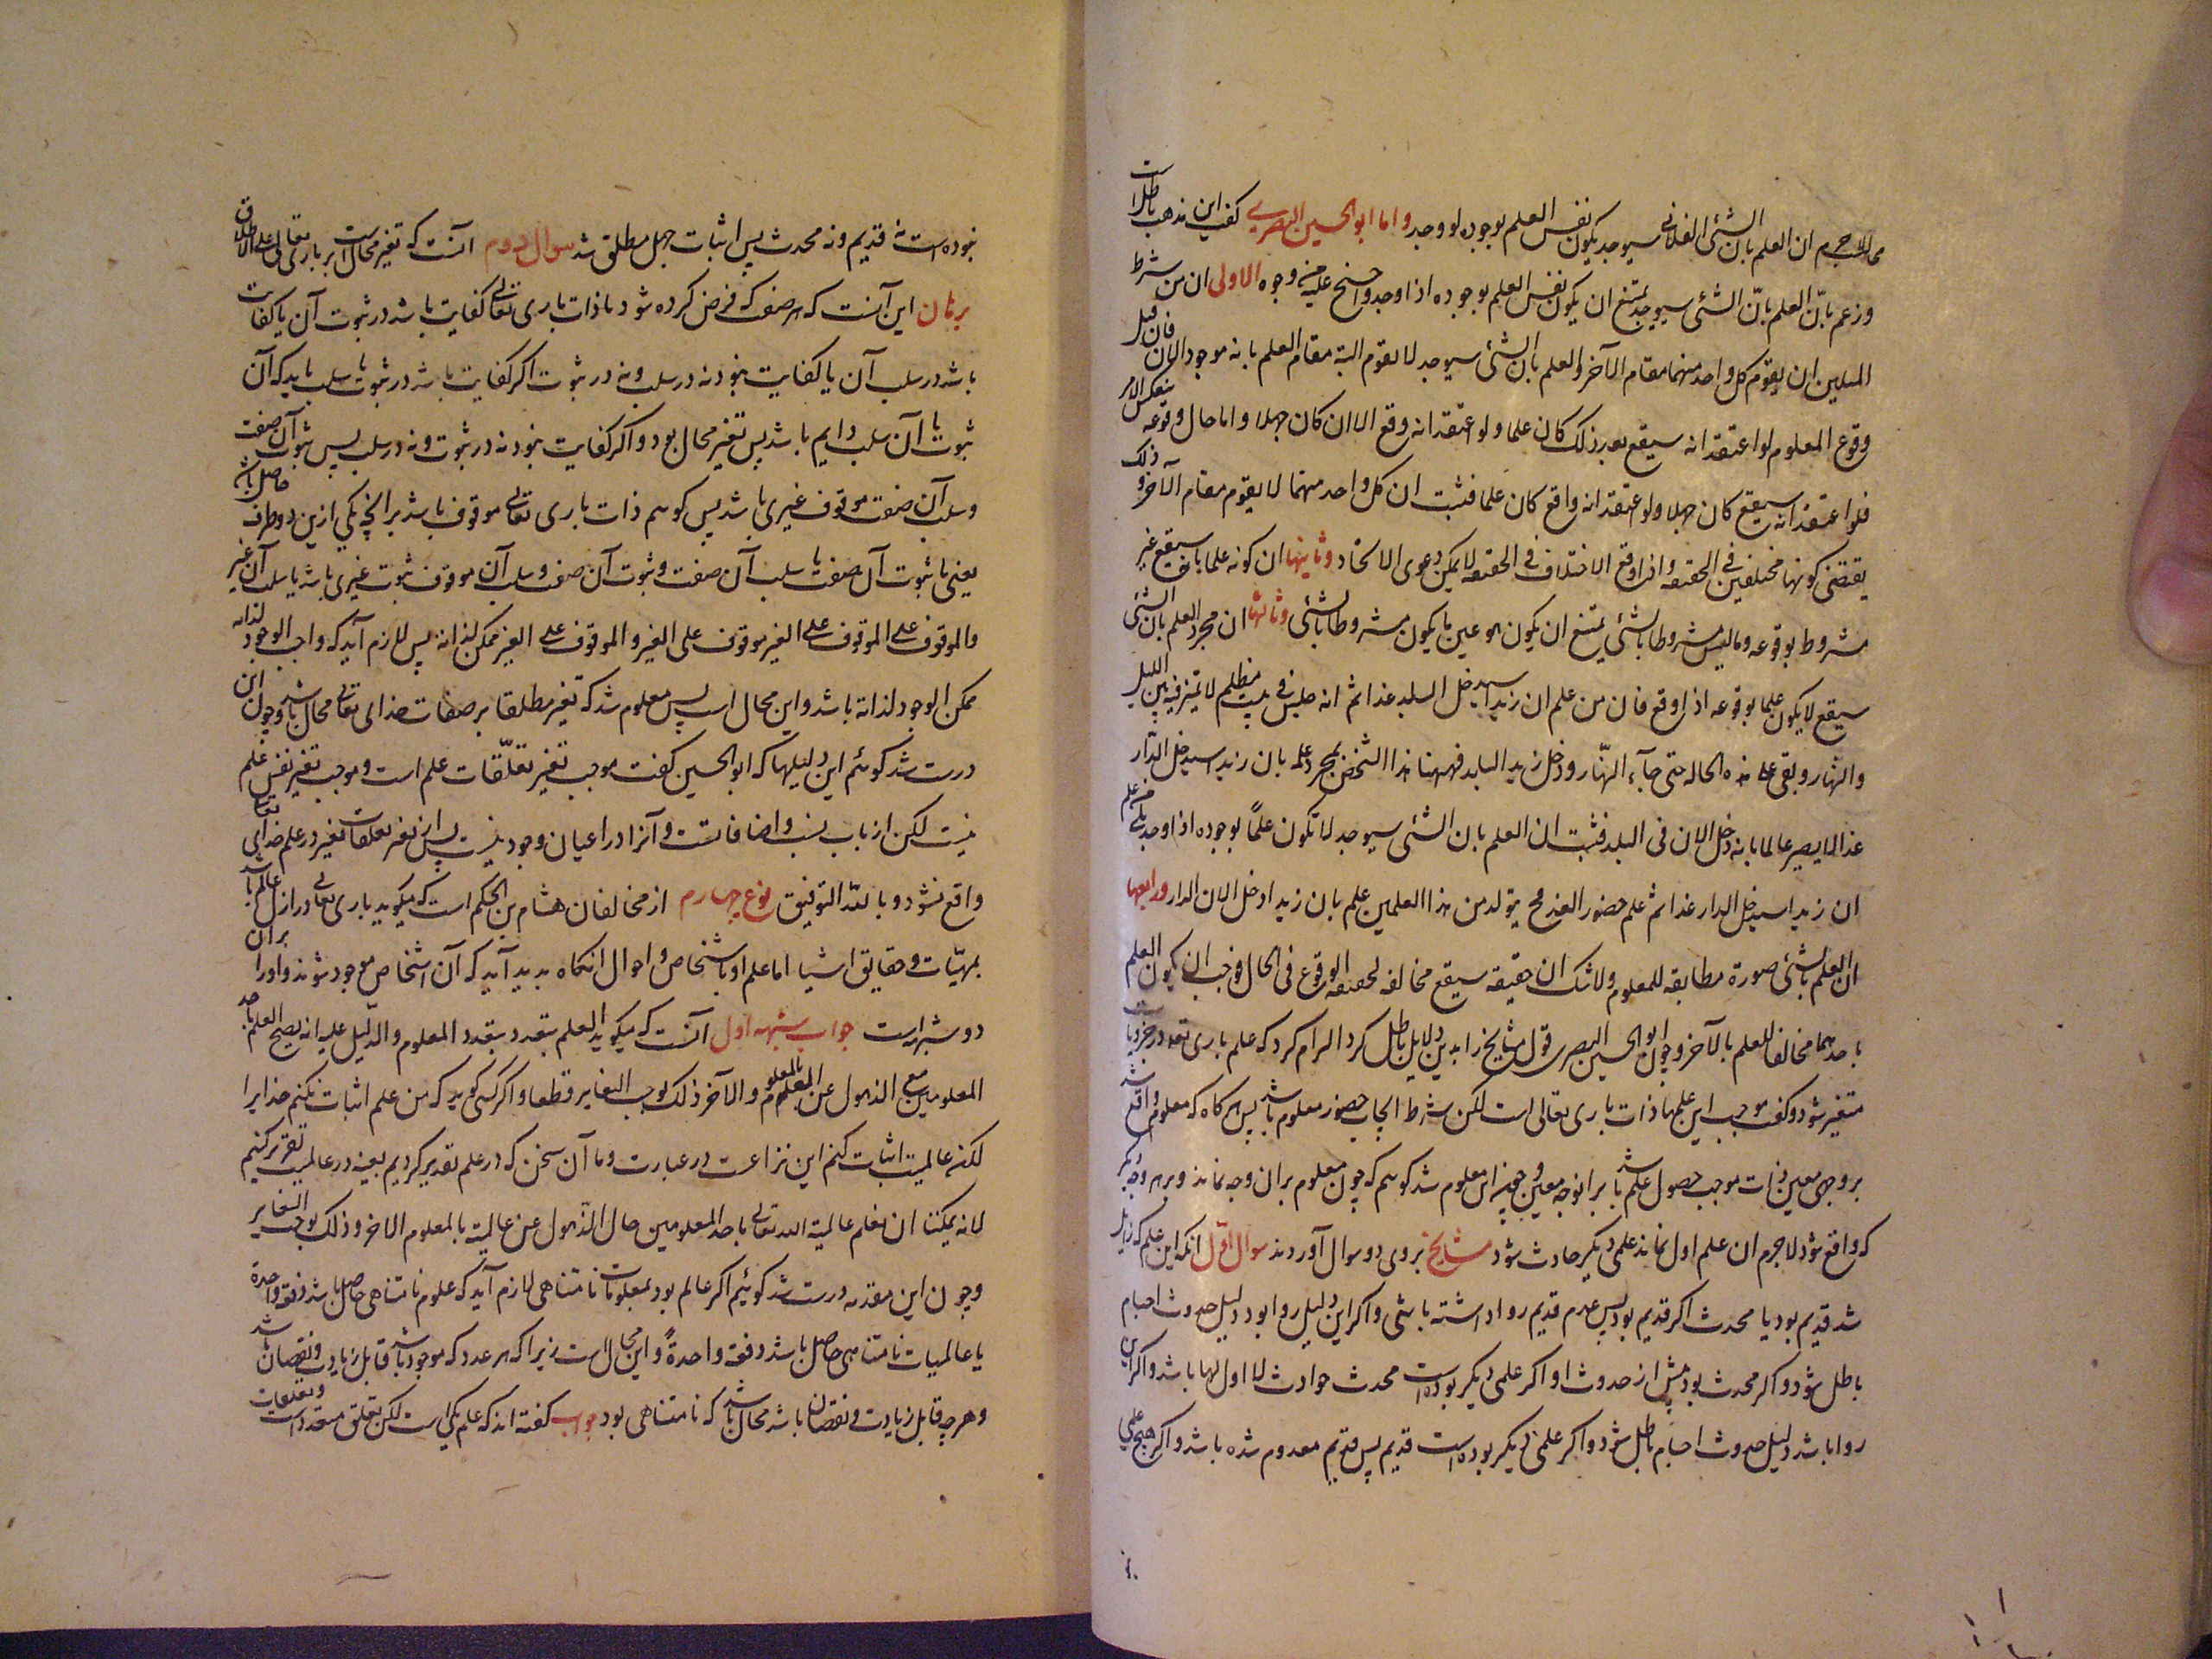 لاجرم ان العلم بان الشئ الفلانى سيوجد يكون نفس العلم بوجوده لو وجد واما ابو الحسين البصرى كفت اين مذهب باطل است
وزعم بانّ العلم بانّ الشئ سيوجد يمتنع ان يكون نفس العلم بوجوده اذا وجد واحتج عليه من وجوه الاولى ان من شرط
المثلين ان يقوم كل واحد منهما مقام الآخر والعلم بان الشئ سيوجد لا يقوم البتة مقام العلم بانه موجود الان فان قبل
وقوع المعلوم لو اعتقد انه سيقع بعد ذلك كان علما ولو اعتقد انه وقع الان كان جهلا واما حال وقوعه ينعكس الامر
فلو اعتقد انه سيقع كان جهلا ولو اعتقد انه واقع كان علما فثبت ان كل واحد منهما لا يقوم مقام الآخر و ذلك
يقتضى كونهما مختلفين فى الحقيقه واذا وقع الاختلاف فى الحقيقه لا يمكن دعوى الاتحاد وثانيها ان كونه علما بانه سيقع غير
مشروط بوقوعه وما ليس مشروطا بالشئ يمتنع ان يكون هو عين ما يكون مشروطا بالشئ وثالثها ان مجرد العلم بان الشئ
سيقع لا يكون علما بوقوعه اذا وقع فان من علم ان زيدا سيدخل البلد غدا ثم انه جلس فى بيت مظلم لا تميز فيه بين الليل
والنهار وبقى على هذه الحاله حتى جآء النهار ودخل زيد البلد فههنا هذا الشخص بمجرد علمه بان زيدا سيدخل الدار
غدا لا يصير عالما بانه دخل الان فى البلد فثبت ان العلم بان الشئ سيوجد لا يكون علمًا بوجوده اذا وجد بلى من علم
ان زيدا سيدخل الدار غدا ثم علم حضور الغد فح يتولد من هذا العلمين علم بان زيدا دخل الان الدار ورابعها
ان العلم بالشئ صورة مطابقه للمعلوم ولا شك ان حقيقة سيقع مخالفه لحقيقه الوقوع فى الحال فوجب ان يكون العلم
باحدهما مخالفا للعلم بالآخر وچون ابو الحسين البصرى قول مشايخ را بدين دلايل باطل كرد الزام كرد كه علم بارى تعه در جزويات
متغير شود وكفت موجب اين علمها ذات بارى تعالى است لكن شرط ايجاب حضور معلوم باشد پس هركاه كه معلوم واقع شد
بر وجهى معين ذات موجب حصول علم باشد برانوجه معين وچون اين معلوم شد كوييم كه چون معلوم بران وجه نماند و بر وجه ديكر
كه واقع شود لاجرم ان علم اول نماند علمى ديكر حادث شود مشايخ بروى دو سوال آوردند سوال اوّل انكه اين علم كه زايل
شد قديم بود يا محدث اكر قديم بود پس عدم قديم روا داشته باشى واكر اين دليل روا بود دليل حدوث اجسام
باطل شود واكر محدث بود پيش از حدوث او اكر علمى ديكر بوده است محدث حوادث لا اول لها باشد واكر اين
روا باشد دليل حدوث اجسام باطل شود واكر علمى ديكر بوده است قديم پس قديم معدوم شده باشد واكر هيچ علمى
نبوده است نه قديم ونه محدث پس اثبات جهل مطلق شد سوال دوم آنست كه تغير محال است بر بارى تعالى على الاطلاق
برهان اين آنست كه هر صفت كه فرض كرده شود يا ذات بارى تعالى كفايت باشد در ثبوت آن يا كفايت
باشد در سلب آن يا كفايت نبود نه در سلب ونه در ثبوت اكر كفايت باشد در ثبوت يا سلب بايد كه آن
ثبوت يا آن سلب دايم باشد پس تغير محال بود واكر كفايت نبود نه در ثبوت ونه در سلب پس ثبوت آن صفت
وسلب آن صفت موقوف غيرى باشد پس كوييم ذات بارى تعالى موقوف باشد بر انچه يكى ازين دو طرف حاصل باشد
يعنى يا ثبوت آن صفت يا سلب آن صفت وثبوت آن صفت وسلب آن موقوف ثبوت غيرى باشد يا سلب آن غير
والموقوف على الموقوف على الغير موقوف على الغير والموقوف على الغير ممكن لذاته پس لازم آيد كه واجب الوجود لذاته
ممكن الوجود لذاته باشد واين محال است پس معلوم شد كه تغير مطلقا بر صفات خداى تعالى محال باشد وچون اين
درست شد كوئيم اين دليلها كه ابو الحسين كفت موجب تغير تعلّقات علم است وموجب تغير نفس علم
نيست لكن از باب نسب واضافاتست وآنرا در اعيان وجود نيست پس از تغير تعلقات تغير در علم خداى تعالى
واقع نشود وبالله التوفيق نوع چهارم از مخالفان هشام بن الحكم است كه ميكويد بارى تعالى در ازل عالم باشد
بمهيّات وحقايق اشيا اما علم او باشخاص واحوال انكاه پديد آيد كه آن اشخاص موجود شوند واورا بران
دو شبهه است جواب شبهه اول آنست كه ميكويد العلم يتعدد بتعدد المعلوم والدّليل عليه انه يصح العلم باحد
المعلومين مع الذهول عن العلم بالمعلوم الآخر ذلك يوجب التغاير قطعا واكر كسى كويد كه من علم اثبات نكنم خدايرا
لكن عالميت اثبات كنم اين نزاعست در عبارت وما آن سخن كه در علم تقدير كرديم بعينه در عالميت تقرير كنيم
لانه يمكننا ان نعلم عالمية الله تعالى باحد المعلومين حال الذّهول عن عالمية بالمعلوم الاخر وذلك يوجب التغاير
وچون اين مقدمه درست شد كوئيم اكر عالم بود بمعلومات نامتناهى لازم آيد كه علوم نامتناهى حاصل باشد دفعة واحدة
يا عالميات نامتناهى حاصل باشد دفعة واحدةً واين محال است زيرا كه هر عدد كه موجود باشد قابل زيادت ونقصان باشد
وهرچه قابل زيادت ونقصان باشد محال باشد كه نامتناهى بود جواب كفته اند كه علم يكى است لكن تعلق متعدد است وتعلقات